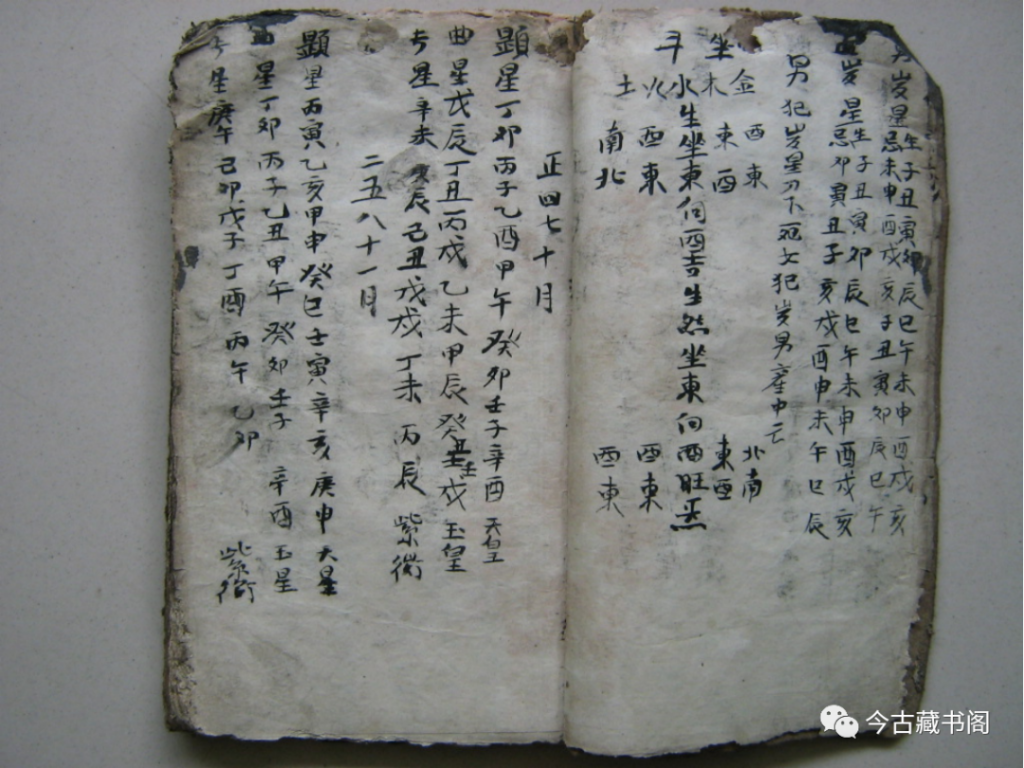 男岁星生子丑寅卯辰巳午未申酉戌亥
忌未申酉戌亥子丑寅卯辰巳午
岁星生子丑寅卯辰巳午未申酉戌亥
忌卯寅丑子亥戌酉申未午巳辰
男犯岁星刀下死女犯岁男產中亡
金 西東 北南
坐木 東西 東西
生坐東向西吉生然坐東向西旺
斗水
火 西東 西東
土 南北 西東
正四七十月
顕星丁卯丙子乙酉甲午癸卯壬子辛酉 天皇
曲星戊辰丁丑丙戌乙未甲辰癸丑壬戌玉皇
星辛未庚辰己丑戊戌丁未丙辰 紫衡
二五八十一月
顕星丙寅乙亥甲申癸巳壬寅辛亥庚申大星
曲星丁卯丙子乙丑甲午癸卯壬子 辛酉玉星
星庚午己卯戊子丁酉丙午乙卯 紫衡
今古藏书阁